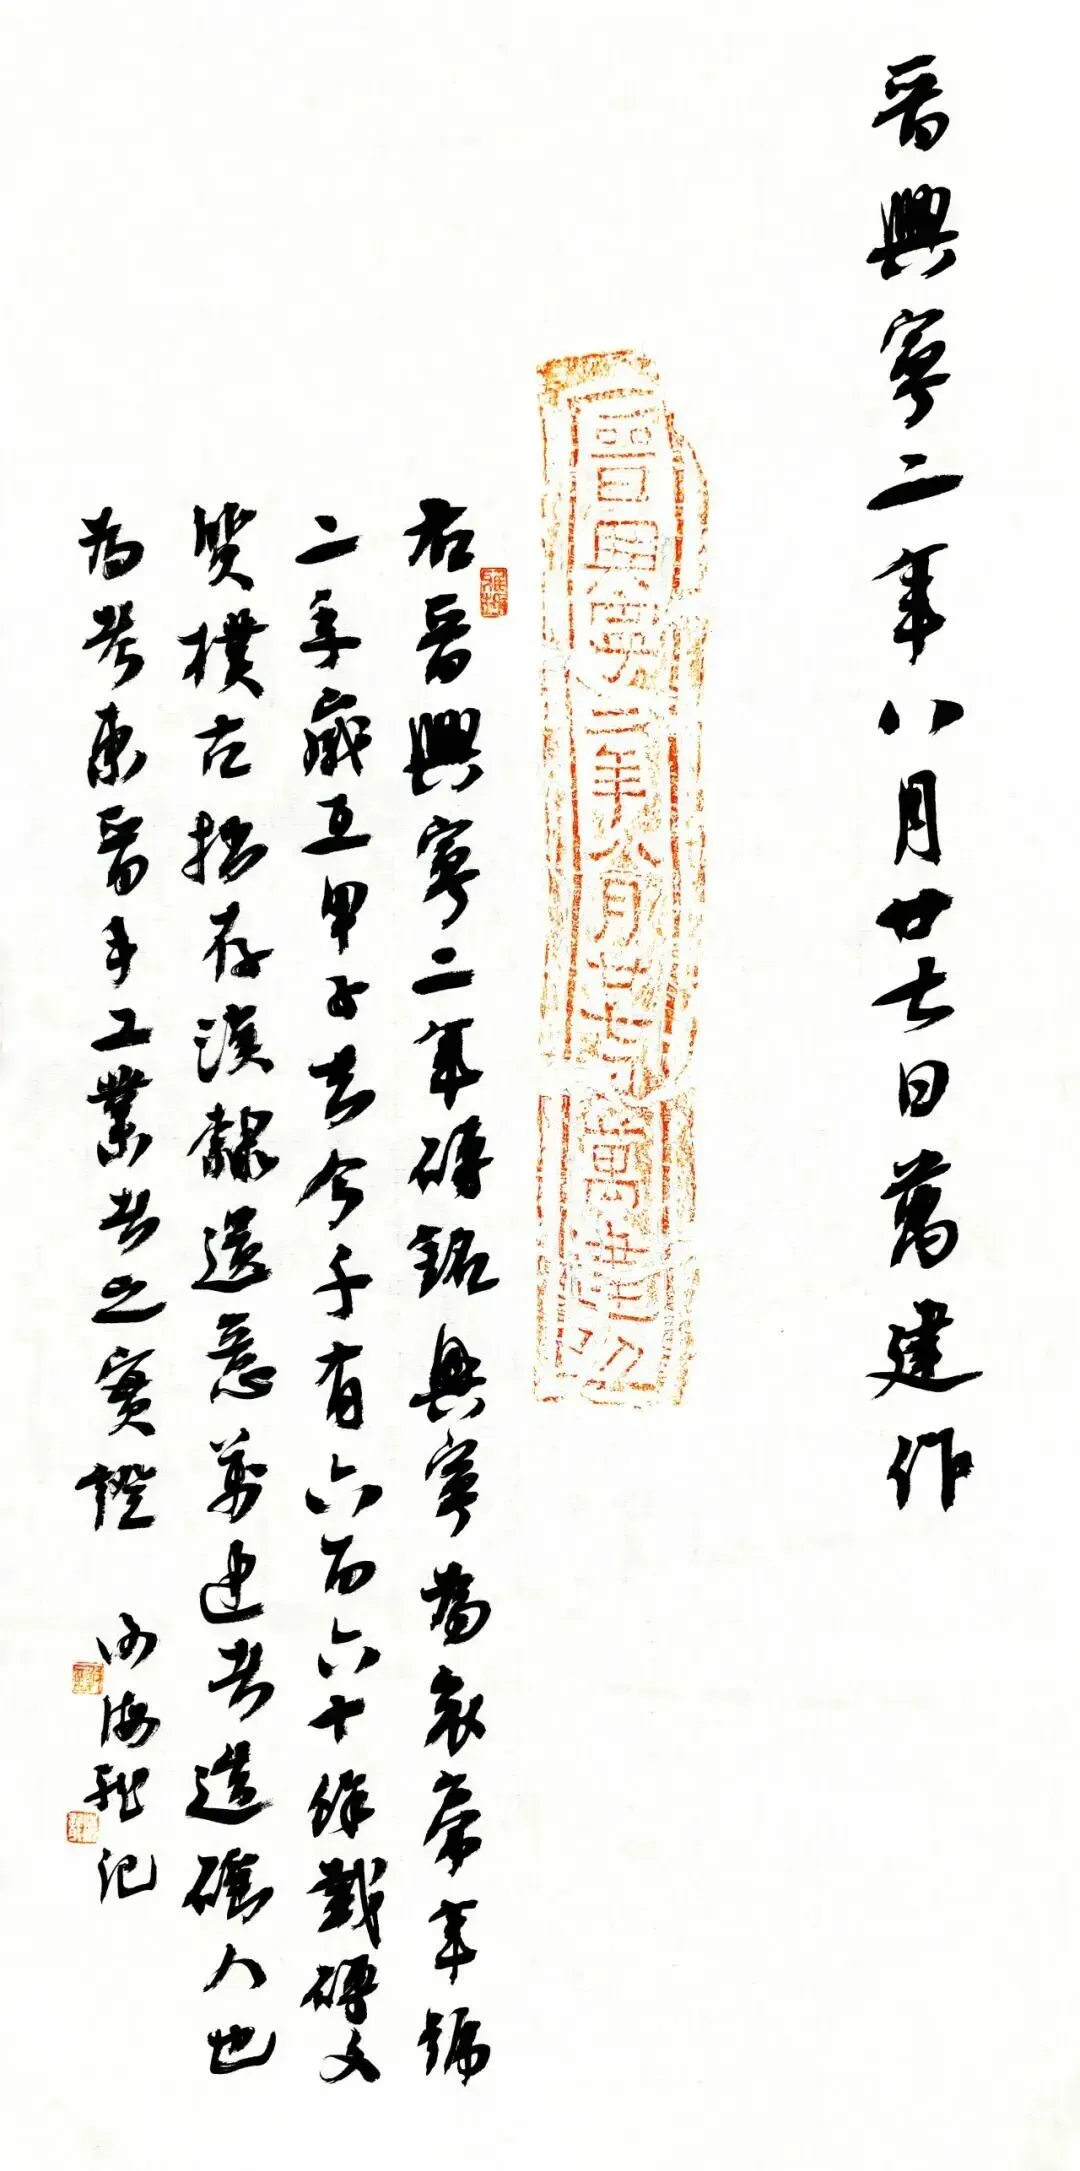 晋興寧二年八月廿七日萬建作
晉興寧二年八月廿七日萬建作
右晋興寧二年磚銘興寧為哀帝年號
二年歲互甲子去今千有六百六十餘載磚文
質樸古拙存漢隸遺意萬建者造磚人也
為考東晋手工業者之實證 海龍記